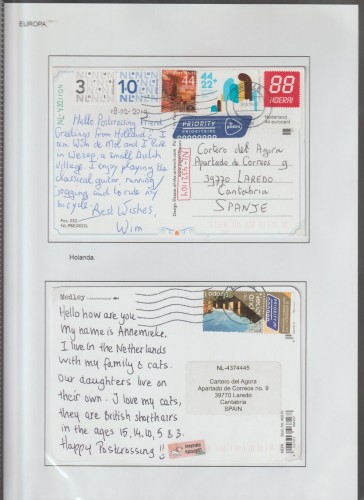 EUROPA.
NL-4321104
3
NL
10
NL
44
44
22
88
HOERA!
18-02-2019
Hello Postcrossing Friend
Greetings from Holland! I
am Wim de Mol and I live
in Weesp, a small Dutch
village. I enjoy playing the
classical guitar, running/
jogging and to ride my
bicycle.
Best Wishes,
Wim
PRIORITY
PRIORITAIRE
Nederland
NL-4321104
Cartero del Agora
Apartado de Correos 9
39770 LAREDO
Cantabria
SPANJE
Holanda.
Medley
Hello how are you.
My name is Annemieke.
I live in the Netherlands
with my family & cats.
Our daughters live on
their own. I love my cats,
they are British shorthairs
in the ages 15, 14, 10, 5 & 3.
Happy Postcrossing!!
PRIORITY
NL-4374445
Cartero del Agora
Apartado de Correos no. 9
39770 Laredo
Cantabria
SPAIN